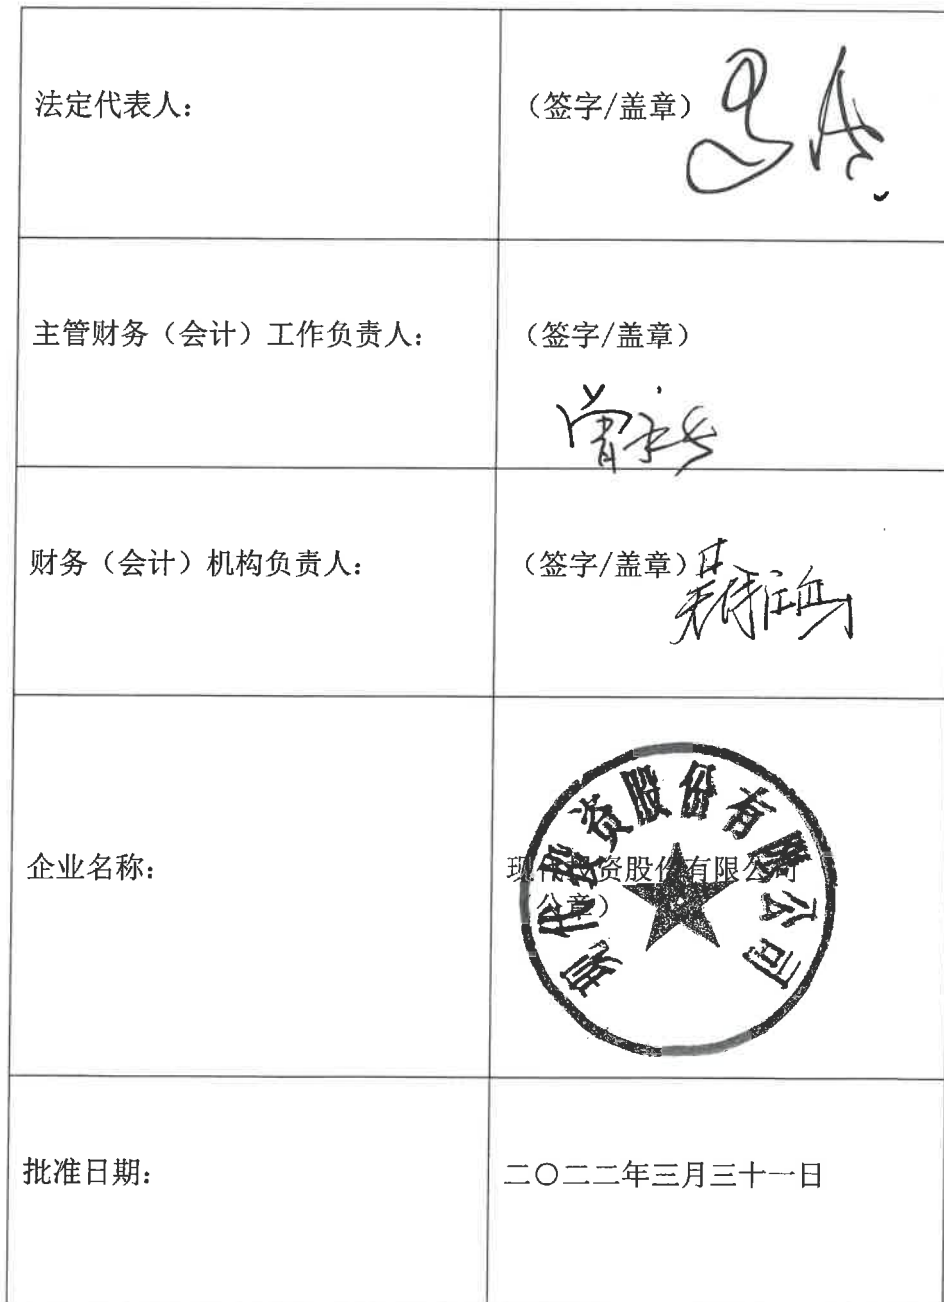 法定代表人：
（签字/盖章）
主管财务（会计）工作负责人：
（签字/盖章）
财务（会计）机构负责人：
（签字/盖章）
企业名称：
现代投资股份有限公司
（公章）
现代投资股份有限公司
批准日期：
二〇二二年三月三十一日